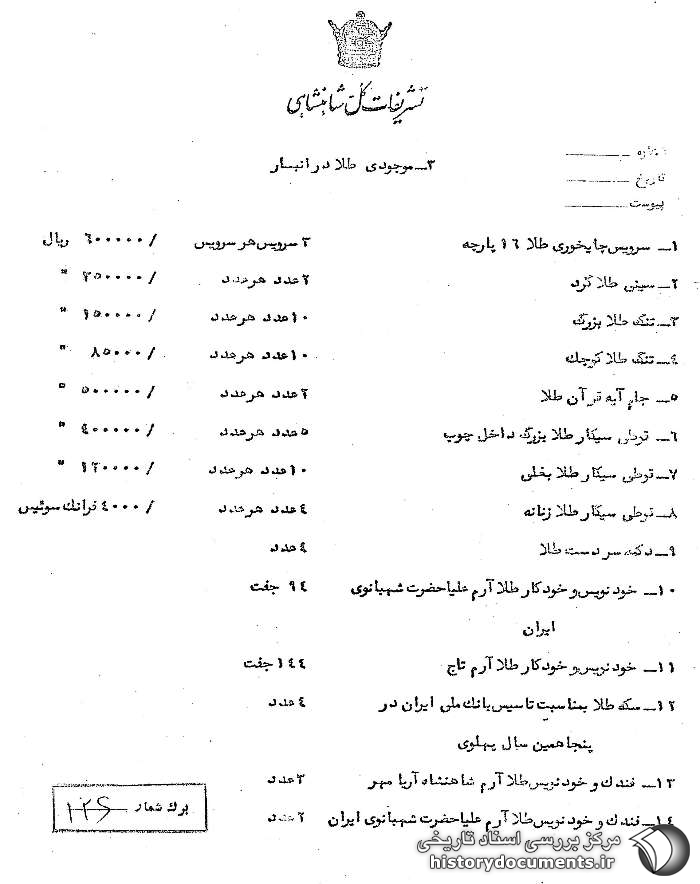 تشریفات کل شاهنشاهی
شماره
تاریخ
پیوست
۳ـ موجودی طلا در انبار
۱ـ سرویس چایخوری طلا ۱۶ پارچه ۲ سرویس هر سرویس /۶۰۰۰۰۰ ریال
۲ـ سینی طلا گرد ۲ عدد هر عدد /۲۵۰۰۰۰ "
۳ـ تنگ طلا بزرگ ۱۰ عدد هر عدد /۱۵۰۰۰۰ "
۴ـ تنگ طلا کوچک ۱۰ عدد هر عدد /۸۵۰۰۰ "
۵ـ جلد آیه قرآن طلا ۲ عدد هر عدد /۵۰۰۰۰۰ "
۶ـ قوطی سیگار طلا بزرگ داخل چوب ۵ عدد هر عدد /۴۰۰۰۰۰ "
۷ـ قوطی سیگار طلا بغلی ۱۰ عدد هر عدد /۱۲۰۰۰۰ "
۸ـ قوطی سیگار طلا زنانه ۴ عدد هر عدد /۴۰۰۰ فرانک سوئیس
۹ـ دکمه سر دست طلا ۴ عدد
۱۰ـ خودنویس و خودکار طلا آرم علیاحضرت شهبانوی ۹۴ جفت
ایران
۱۱ـ خودنویس و خودکار طلا آرم تاج ۱۴۴ جفت
۱۲ـ سکه طلا بمناسبت تاسیس بانک ملی ایران در ۴ عدد
پنجاهمین سال پهلوی
۱۳ـ فندک و خودنویس طلا آرم شاهنشاه آریا مهر ۳ عدد
۱۴ـ فندک و خودنویس طلا آرم علیاحضرت شهبانوی ایران ۲ عدد
برگ شمار
مرکز بررسی اسناد تاریخی
historydocuments.ir